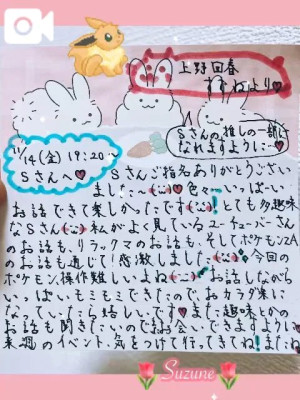 上野回春
すずねより♥
Sさんの推しの一部に
なれますように…♥
11/14(金) 19:20〜
Sさんへ♥
Sさんご指名ありがとうござい
ました〜♥色々いっぱい
お話できて楽しかったです！とても多趣味
なSさん！私がよく見ているユーチューバーさん
のお話も、リラックマのお話も、そしてポケモンZA
のお話も通じて感激しました！今回の
ポケモン操作難しいよね お話しながら
いっぱいモミモミできたので、おカラダ楽に
なっていたら嬉しいです♥また趣味とかの
お話も聞きたいのでお会いできますように♥
来週のイベント、気をつけて行ってきてね！またね♥
Suzune